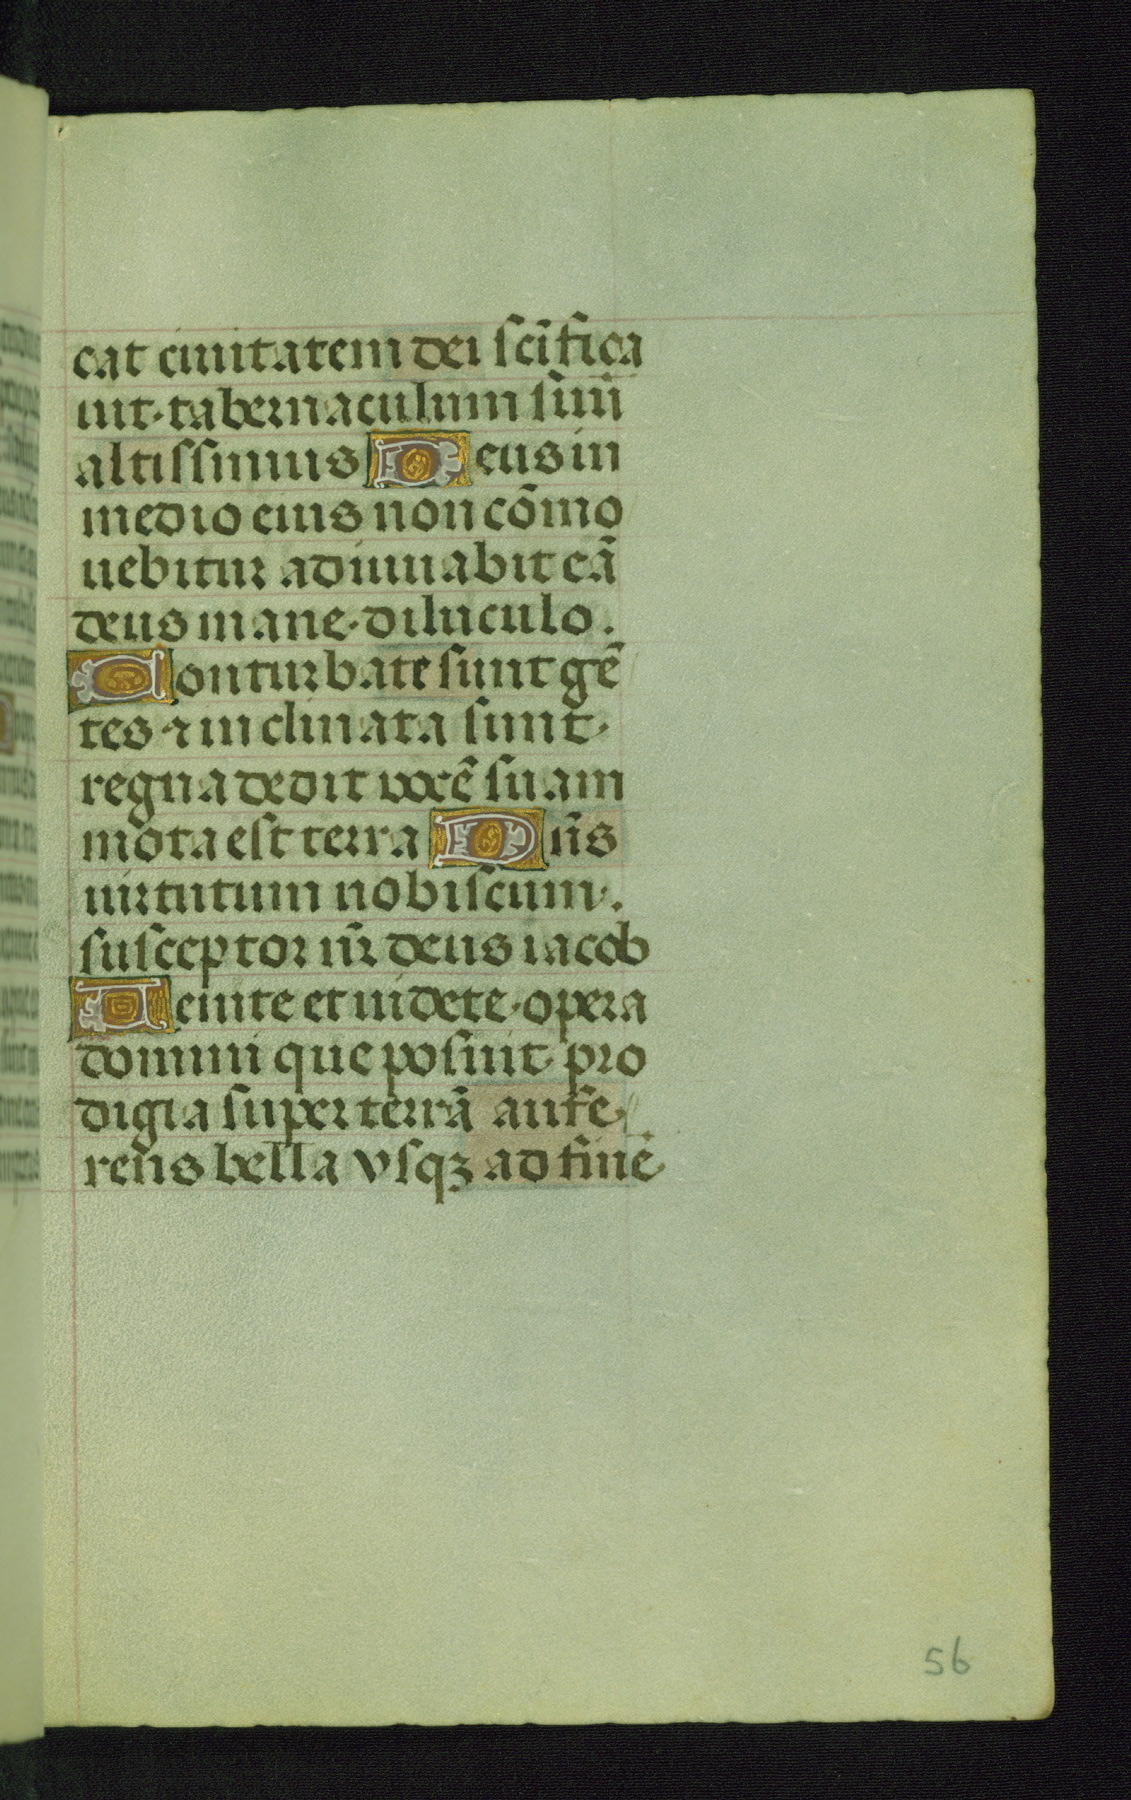 cat ciuitatem dei scĩfica
uit·tabernaculum suũ
altissimus Deus in
medio eius non cõmo
uebitur adiuuabit eã
deus mane·diluculo.
Conturbate sunt gẽ
tes·⁊ inclinata sunt·
regna dedit vocẽ suam
mota est terra Dñs
uirtutum nobiscum·.
susceptor nr̃ deus iacob
Uenite et uidete·opera
domini que posuit pro
digia super terrã aufe
rens bella vsqꝫ ad finẽ
56